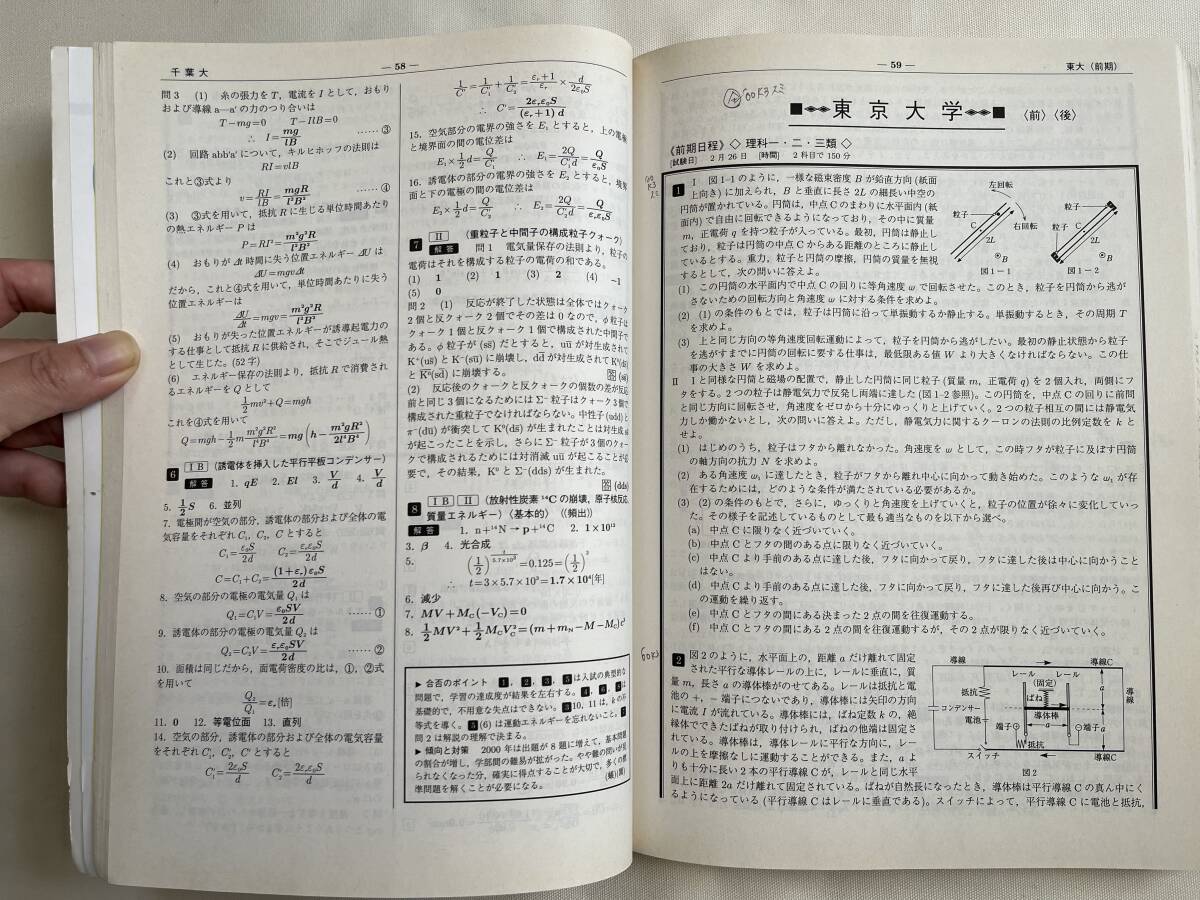 千葉大
― 58 ―
問3 (1) 糸の張力をT，電流をIとして，おもり
および導線a―a′の力のつり合いは
T－mg＝0 T－IlB＝0
∴ I＝mg/lB ……③
(2) 回路abb′a′について，キルヒホッフの法則は
RI＝vlB
これと③式より
v＝RI/lB＝mgR/l²B² ……④
(3) ③式を用いて，抵抗Rに生じる単位時間あたり
の熱エネルギーPは
P＝RI²＝m²g²R/l²B²
(4) おもりがΔt時間に失う位置エネルギーΔUは
ΔU＝mgvΔt
だから，これと④式を用いて，単位時間あたりに失う
位置エネルギーは
ΔU/Δt＝mgv＝m²g²R/l²B²
(5) おもりが失った位置エネルギーが誘導起電力の
する仕事として抵抗Rに供給され，そこでジュール熱
として生じた。(52字)
(6) エネルギー保存の法則より，抵抗Rで消費され
るエネルギーをQとして
1/2mv²＋Q＝mgh
これを④式を用いて
Q＝mgh－1/2m m²g²R²/l⁴B⁴＝mg(h－m²gR²/2l⁴B⁴)
6 ⅠB (誘電体を挿入した平行平板コンデンサー)
解答 1. qE 2. El 3. V/d 4. V/d
5. 1/2S 6. 並列
7. 電極間が空気の部分，誘電体の部分および全体の電
気容量をそれぞれC₁，C₂，Cとすると
C₁＝ε₀S/2d C₂＝εᵣε₀S/2d
C＝C₁＋C₂＝(1＋εᵣ)ε₀S/2d
8. 空気の部分の電極の電気量Q₁は
Q₁＝C₁V＝ε₀SV/2d ……①
9. 誘電体の部分の電極の電気量Q₂は
Q₂＝C₂V＝εᵣε₀SV/2d ……②
10. 面積は同じだから，面電荷密度の比は，①，②式
を用いて
Q₂/Q₁＝εᵣ[倍]
11. 0 12. 等電位面 13. 直列
14. 空気の部分，誘電体の部分および全体の電気容量
をそれぞれC₁′，C₂′，C′とすると
C₁′＝2ε₀S/d C₂′＝2εᵣε₀S/d
1/C′＝1/C₁′＋1/C₂′＝εᵣ＋1/εᵣ×d/2ε₀S
∴ C′＝2εᵣε₀S/(εᵣ＋1)d
15. 空気部分の電界の強さをE₁とすると，上の電極
と境界面の間の電位差は
E₁×1/2d＝Q/C₁′ ∴ E₁＝2Q/C₁′d＝Q/ε₀S
16. 誘電体の部分の電界の強さをE₂とすると，境界
面と下の電極の間の電位差は
E₂×1/2d＝Q/C₂′ ∴ E₂＝2Q/C₂′d＝Q/εᵣε₀S
7 Ⅱ (重粒子と中間子の構成粒子クォーク)
解答 問1 電気量保存の法則より，粒子の
電荷はそれを構成する粒子の電荷の和である。
(1) 1 (2) 1 (3) 2 (4) －1
(5) 0
問2 (1) 反応が終了した状態は全体ではクォーク
2個と反クォーク2個でその差は0なので，φ粒子は
クォーク1個と反クォーク1個で構成された中間子で
ある。φ粒子が(ss̄)だとすると，uūが対生成されて
K⁺(us̄)とK⁻(sū)に崩壊し，dd̄が対生成されてK⁰(ds̄)
とK̄⁰(sd̄)に崩壊する。 答(ss̄)
(2) 反応後のクォークと反クォークの個数の差が反応
前と同じ3個になるためにはΣ⁻粒子はクォーク3個で
構成された重粒子でなければならない。中性子(udd)と
π⁻(dū)が衝突してK⁰(ds̄)が生まれたことは対生成ss̄
が起こったことを示し，さらにΣ⁻粒子が3個のクォー
クで構成されるためには対消滅uūが起こることが必
要で，その結果，K⁰とΣ⁻(dds)が生まれた。
答(dds)
8 ⅠB Ⅱ (放射性炭素¹⁴Cの崩壊，原子核反応，
質量エネルギー)〈基本的〉〈(頻出)〉
解答 1. n＋¹⁴N→p＋¹⁴C 2. 1×10¹²
3. β 4. 光合成
5. (1/2)^(t/5.7×10³)＝0.125＝(1/2)³
∴ t＝3×5.7×10³＝1.7×10⁴[年]
6. 減少
7. MV＋M_C(－V_C)＝0
8. 1/2MV²＋1/2M_CV_C²＝(m＋m_N－M－M_C)c²
▶合否のポイント 1，2，3，5は入試の典型的な
問題で，学習の達成度が結果を左右する。4，6，8は
基礎的で，不用意な失点はできない。310，11は，kの不
等式を導く。5(6)は運動エネルギーを忘れないこと。7
問2は解説の理解で決まる。
▶傾向と対策 2000年は出題が8題に増えて，基本問題
の割合が増し，学部間の難易が拡がった。やや難の問いが見
られなくなった分，確実に得点することが大切で，多くの標
準問題を解くことが必要になる。 (蟻)(開)
― 59 ―
東大（前期）
'00 K3 スミ
■東京大学■ 〈前〉〈後〉
《前期日程》◇理科一・二・三類◇
[試験日] 2月26日 [時間] 2科目で150分
1 Ⅰ 図1-1のように，一様な磁束密度Bが鉛直方向(紙面
上向き)に加えられ，Bと垂直に長さ2Lの細長い中空の
円筒が置かれている。円筒は，中点Cのまわりに水平面内(紙
面内)で自由に回転できるようになっており，その中に質量
m，正電荷qを持つ粒子が入っている。最初，円筒は静止し
ており，粒子は円筒の中点Cからある距離のところに静止し
ているとする。重力，粒子と円筒の摩擦，円筒の質量を無視
するとして，次の問いに答えよ。
左回転
粒子
右回転
C
2L
B
図1－1
粒子
粒子
C
2L
B
図1－2
(1) この円筒の水平面内で中点Cの回りに等角速度ωで回転させた。このとき，粒子を円筒から逃が
さないための回転方向と角速度ωに対する条件を求めよ。
(2) (1)の条件のもとでは，粒子は円筒に沿って単振動するか静止する。単振動するとき，その周期T
を求めよ。
(3) 上と同じ方向の等角速度回転運動によって，粒子を円筒から逃がしたい。最初の静止状態から粒子
を逃がすまでに円筒の回転に要する仕事は，最低限ある値Wより大きくなければならない。この仕
事の大きさWを求めよ。
Ⅱ Ⅰと同様な円筒と磁場の配置で，静止した円筒に同じ粒子(質量m，正電荷q)を2個入れ，両側にフ
タをする。2つの粒子は静電気力で反発し両端に達した(図1-2参照)。この円筒を，中点Cの回りに前問
と同じ方向に回転させ，角速度をゼロから十分にゆっくりと上げていく。2つの粒子相互の間には静電気
力しか働かないとし，次の問いに答えよ。ただし，静電気力に関するクーロンの法則の比例定数をkと
せよ。
(1) はじめのうち，粒子はフタから離れなかった。角速度をωとして，この時フタが粒子に及ぼす円筒
の軸方向の抗力Nを求めよ。
(2) ある角速度ω₁に達したとき，粒子がフタから離れ中心に向かって動き始めた。このようなω₁が存
在するためには，どのような条件が満たされている必要があるか。
(3) (2)の条件のもとで，さらに，ゆっくりと角速度を上げていくと，粒子の位置が徐々に変化していっ
た。その様子を記述しているものとして最も適当なものを以下から選べ。
(a) 中点Cに限りなく近づいていく。
(b) 中点Cとフタの間のある点に限りなく近づいていく。
(c) 中点Cより手前のある点に達した後，フタに向かって戻り，フタに達した後は中心に向かうこと
はない。
(d) 中点Cより手前のある点に達した後，フタに向かって戻り，フタに達した後再び中心に向かう。こ
の運動を繰り返す。
(e) 中点Cとフタの間にある決まった2点の間を往復運動する。
(f) 中点Cとフタの間にある2点の間を往復運動するが，その2点が限りなく近づいていく。
2 図2のように，水平面上の，距離aだけ離れて固定
された平行な導体レールの上に，レールに垂直に，質
量m，長さaの導体棒がのせてある。レールは抵抗と電
池の＋，－端子につないであり，導体棒には矢印の方向
に電流Iが流れている。導体棒には，ばね定数kの，絶
縁体でできたばねが取り付けられ，ばねの他端は固定さ
れている。導体棒は，導体レールに平行な方向に，レー
ルの上を摩擦なしに運動することができる。また，aよ
りも十分に長い2本の平行導線Cが，レールと同じ水平
面上に距離2aだけ離れて固定されている。ばねが自然長になったとき，導体棒は平行導線Cの真ん中にく
るようになっている(平行導線Cはレールに垂直である)。スイッチによって，平行導線Cに電池と抵抗，
導線
導線C
レール
レール
(固定)
抵抗
ばね
コンデンサー
導体棒
電池
端子
a
端子
抵抗
a
a
導線
スイッチ
導線C
図2